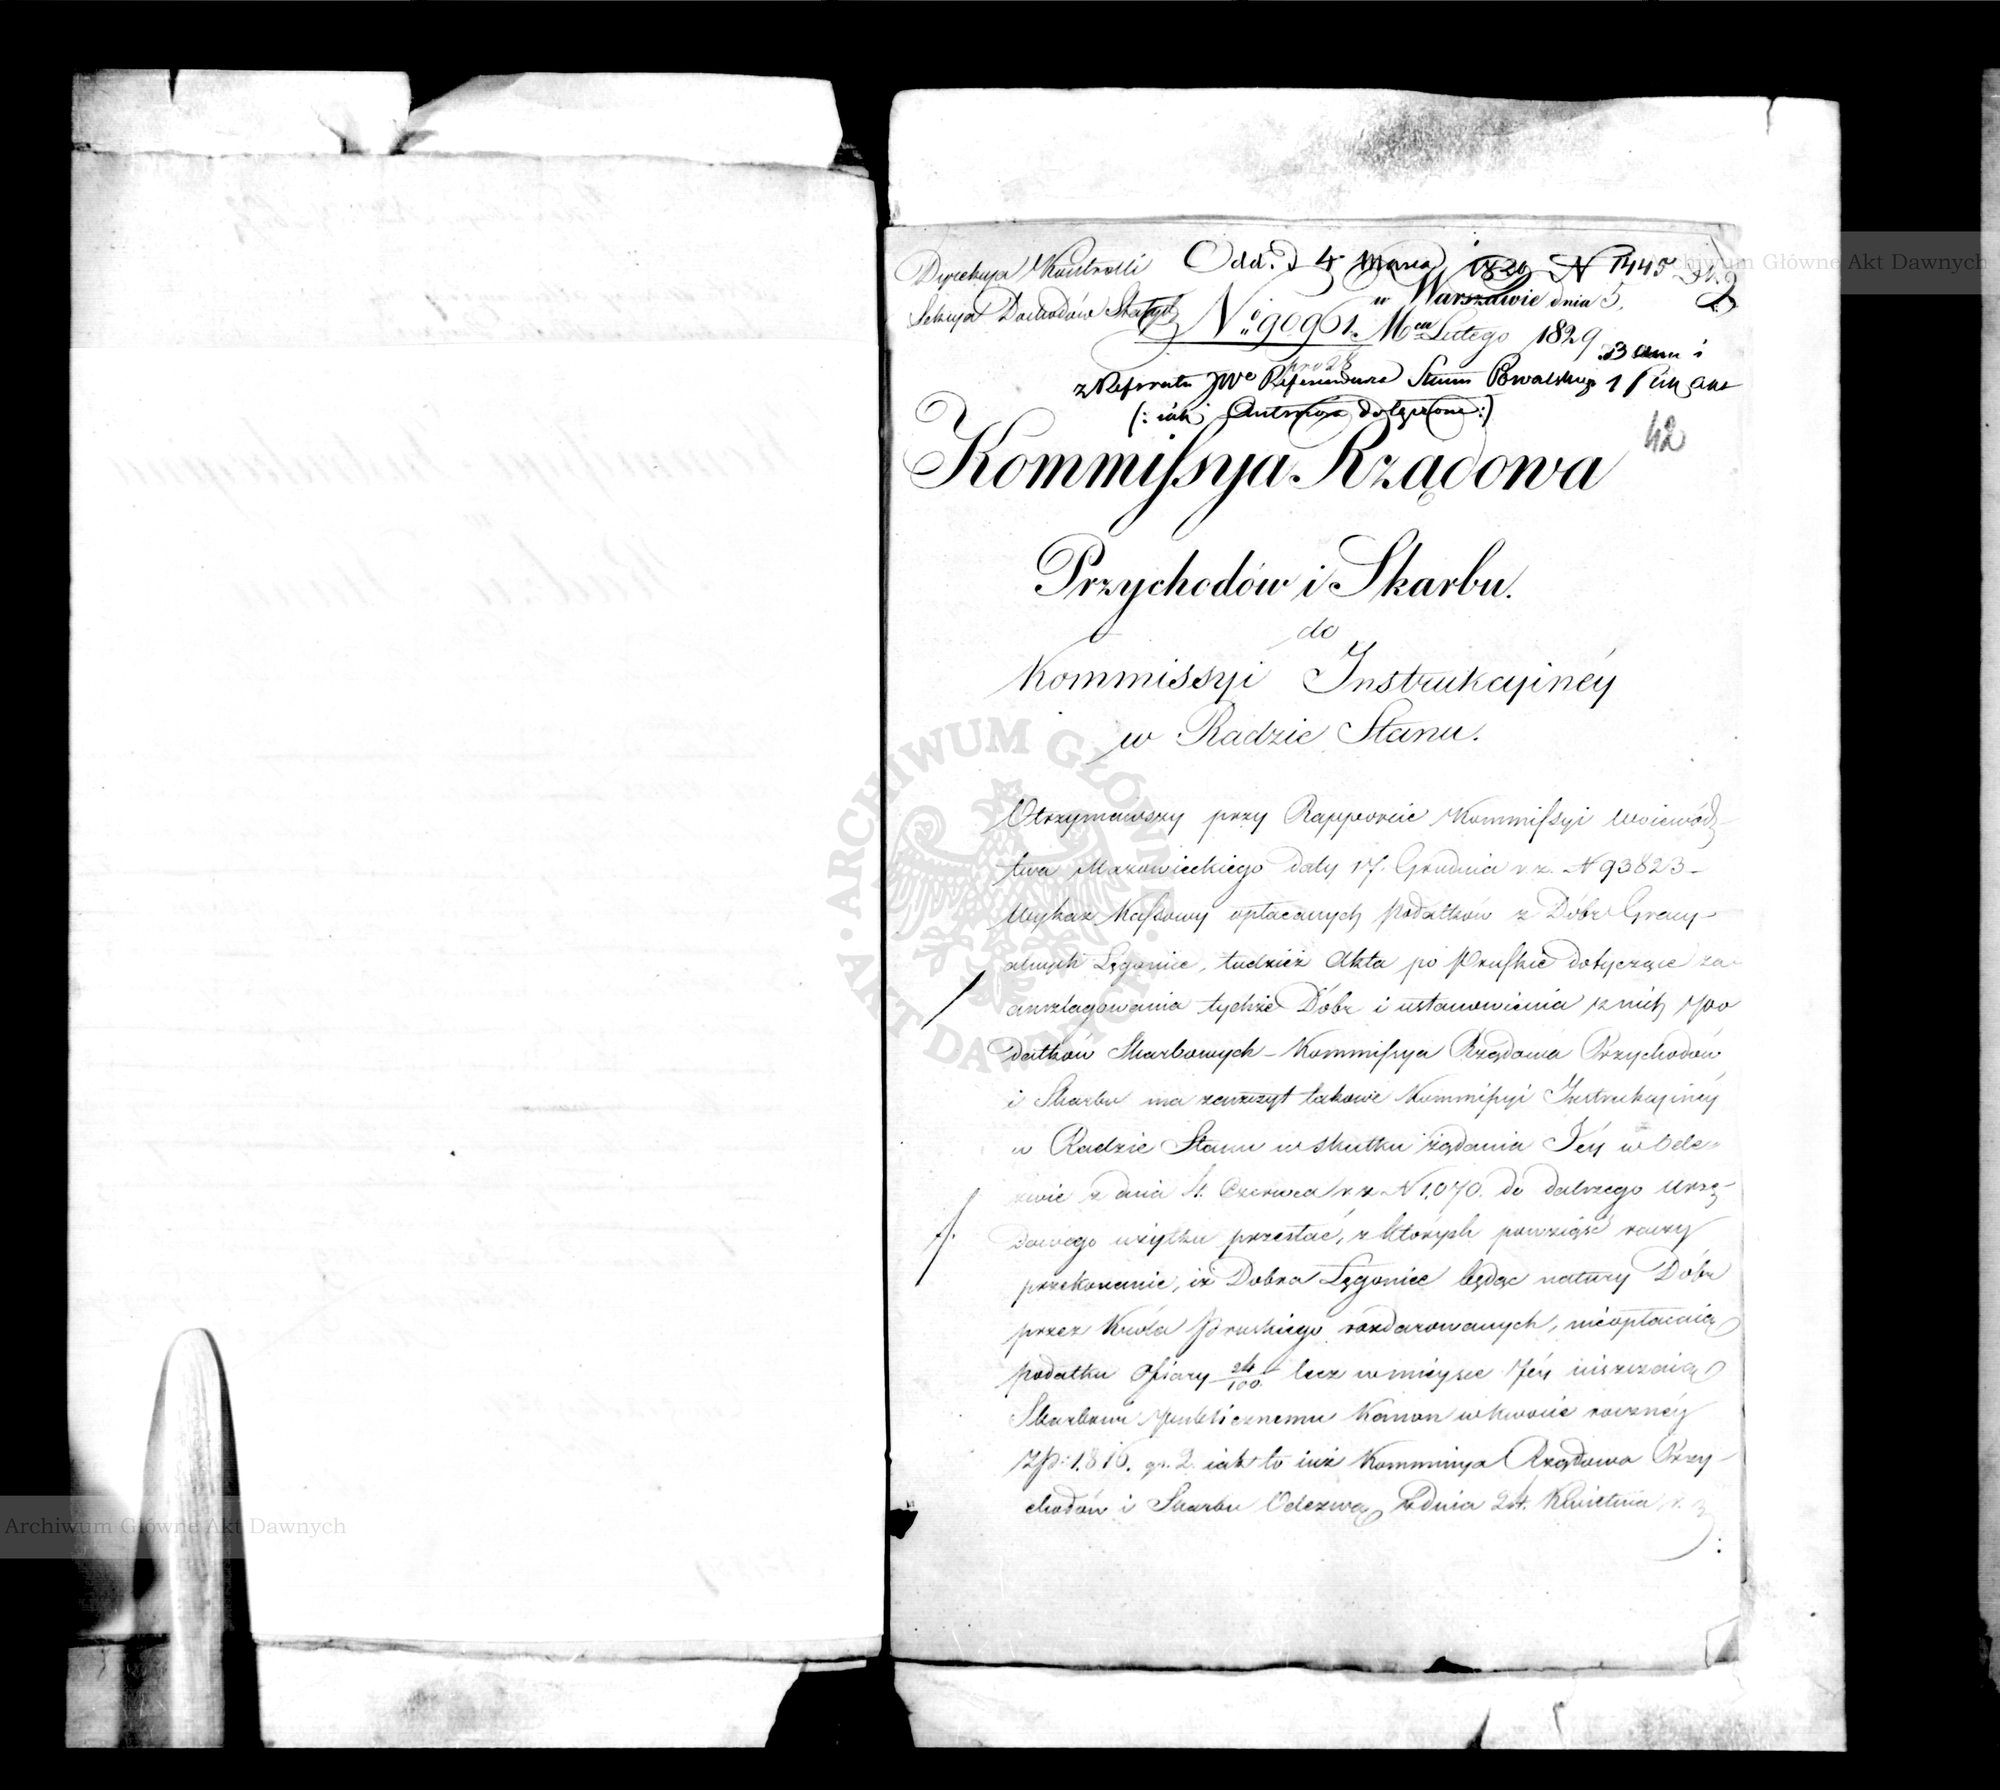 Dyrekcya Kontrolli
Sekcya Dochodów Stałych
Odd: d 4 Marca 1829 N 1445
w Warszawie dnia 5.
No 90961. Mca Lutego 1829
z Referatu JWo Referendarza Stanu
(: iak dołączone :)
42
Kommissya Rządowa
Przychodów i Skarbu.
do
Kommissyi Instrukcyinéy
w Radzie Stanu.
Otrzymawszy przy Rapporcie Kommissyi Woiewódz-
twa Mazowieckiego daty 17. Grudnia r. z. N 93823 –
Wykaz Kassowy opłacanych podatków z Dóbr Grauy-
alnych Łęgonice, tudzież Akta po Pruskie dotyczące za-
anszlagowania tychże Dóbr i ustanowienia z nich po
datków Skarbowych – Kommissya Rządowa Przychodów
i Skarbu ma zaszczyt takowe Kommissyi Instrukcyinéy
w Radzie Stanu w skutku żądania Jéy w Ode-
zwie z dnia 4. Czerwca r. z. N 1,070. do dalszego Urzę-
dowego użytku przesłać, z których powziąść raczy
przekonanie, iż Dobra Łęgonice będąc natury Dóbr
przez Króla Pruskiego rozdarowanych, nieopłacaią
podatku Ofiary 24/100 lecz w mieysce Jéy uiszczaią
Skarbowi publicznemu Kanon w kwocie rocznéy
Złp: 1,816. gr. 2. iak to iuż Kommissya Rządowa Przy-
chodów i Skarbu Odezwą z dnia 24. Kwietnia r. z.
ARCHIWUM GŁÓWNE AKT DAWNYCH
Archiwum Główne Akt Dawnych
Archiwum Główne Akt Dawnych